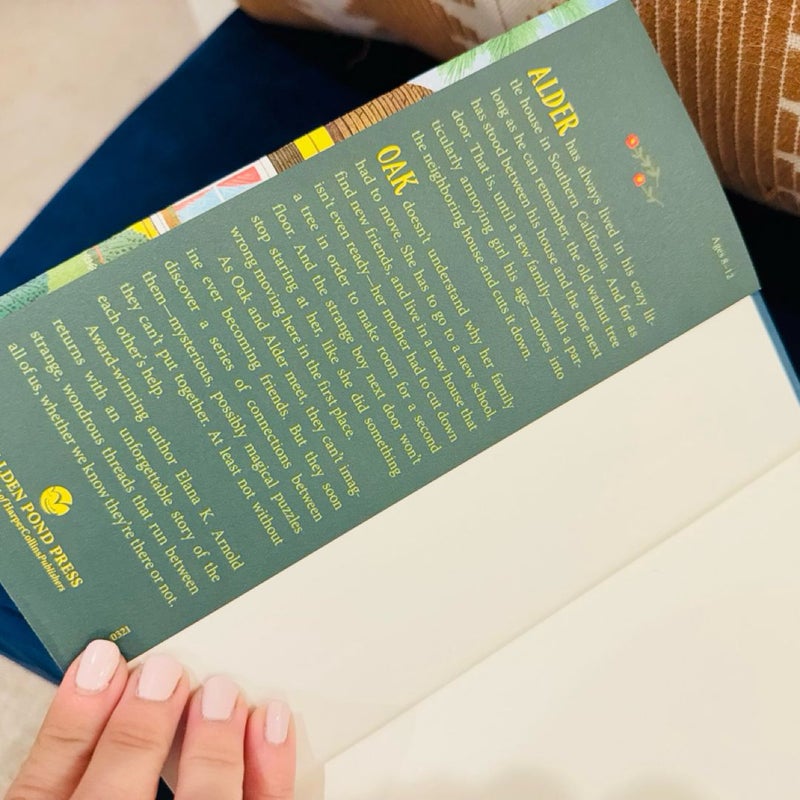 Ages 8–12
ALDER has always lived in his cozy lit-
tle house in Southern California. And for as
long as he can remember, the old walnut tree
has stood between his house and the one next
door. That is, until a new family—with a par-
ticularly annoying girl his age—moves into
the neighboring house and cuts it down.
OAK doesn't understand why her family
had to move. She has to go to a new school,
find new friends, and live in a new house that
isn't even ready—her mother had to cut down
a tree in order to make room for a second
floor. And the strange boy next door won't
stop staring at her, like she did something
wrong moving here in the first place.
As Oak and Alder meet, they can't imag-
ine ever becoming friends. But they soon
discover a series of connections between
them—mysterious, possibly magical puzzles
they can't put together. At least not without
each other's help.
Award-winning author Elana K. Arnold
returns with an unforgettable story of the
strange, wondrous threads that run between
all of us, whether we know they're there or not.
LDEN POND PRESS
of HarperCollinsPublishers
0321